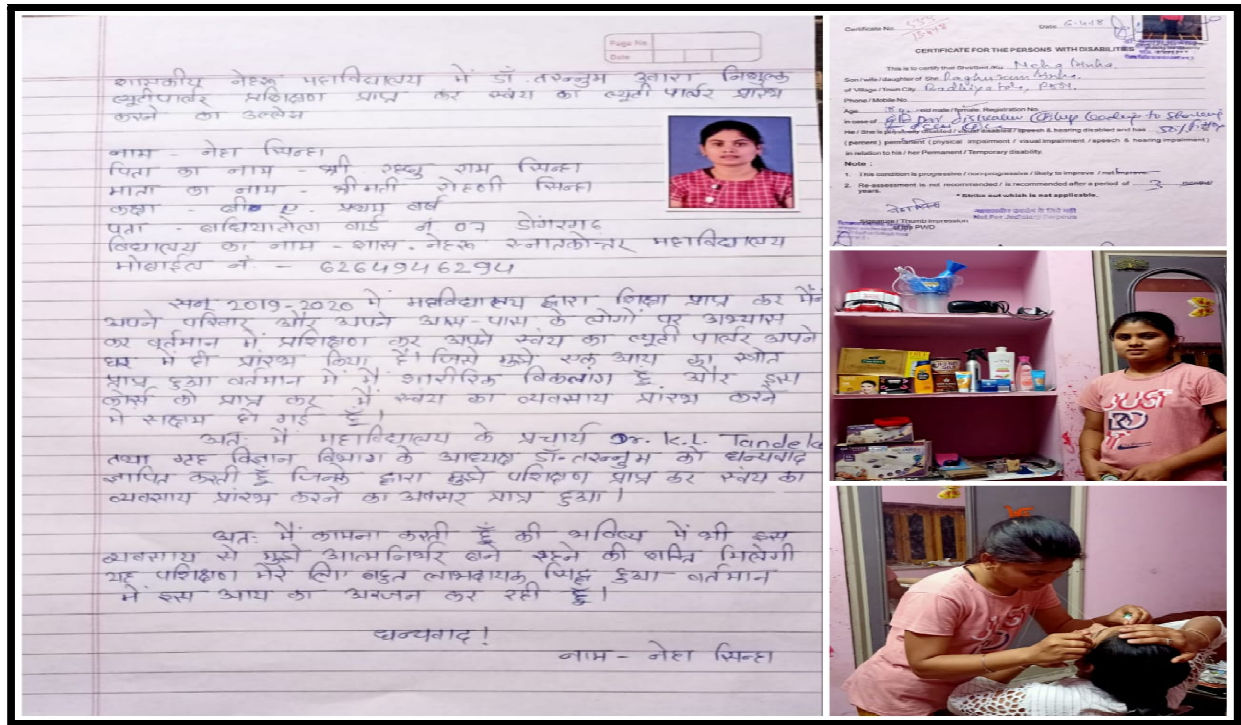 Page No.
Date
शासकीय नेहरू महाविद्यालय में डॉ. तरन्नुम द्वारा निशुल्क
ब्यूटीपार्लर प्रशिक्षण प्राप्त कर स्वंय का ब्यूटी पार्लर प्रारंभ
करने का उल्लेख
नाम - नेहा सिन्हा
पिता का नाम - श्री राम सिन्हा
माता का नाम - श्रीमती रोहणी सिन्हा
कक्षा - बी ए. प्रथम वर्ष
पता - बधियाटोला वार्ड नं 07 डोंगरगढ़
विद्यालय का नाम - शास. नेहरू स्नातकोत्तर महाविद्यालय
मोबाईल नं. - 6264946294
सन् 2019-2020 में महाविद्यालय द्वारा शिक्षा प्राप्त कर मैंने
अपने परिवार और अपने आस-पास के लोगों पर अभ्यास
कर वर्तमान में प्रशिक्षण कर अपने स्वंय का ब्यूटी पार्लर अपने
घर में ही प्रारंभ किया है। जिसे मुझे एक आय का स्त्रोत
प्राप्त हुआ वर्तमान में मैं शारीरिक विकलांग हूँ और इस
कोर्स को प्राप्त कर मैं स्वंय का व्यवसाय प्रारंभ करने
में सक्षम हो गई हूँ।
अतः मैं महाविद्यालय के प्रचार्य Dr. K.L. Tandeka
तथा गृह विज्ञान विभाग के अध्यक्ष डॉ-तरन्नुम को धन्यवाद
ज्ञापित करती हूँ जिनके द्वारा मुझे पशिक्षण प्राप्त कर स्वंय का
व्यवसाय प्रारंभ करने का अवसर प्राप्त हुआ।
अतः मैं कामना करती हूँ की भविष्य में भी इस
व्यवसाय से मुझे आत्मनिर्भर बने रहने की शक्ति मिलेगी
यह पशिक्षण मेरे लिए बहुत लाभदायक सिद्ध हुआ वर्तमान
में इस आय का अरजन कर रही हूँ।
धन्यवाद!
नाम - नेहा सिन्हा
Certificate No.
Date 6-4-18
CERTIFICATE FOR THE PERSONS WITH DISABILITIES
This is to certify that Shri/Smt./Ku. Neha Sinha
Son / wife / daughter of Shri Raghuram Sinha
of Village / Town City
Phone / Mobile No.
Age old male / female, Registration No.
in case of
He / She is physically disabled / visual disabled / speech & hearing disabled and has
( percent ) permanent ( physical impairment / visual impairment / speech & hearing impairment )
in relation to his / her Permanent / Temporary disability.
Note :
1. This condition is progressive / non-progressive / likely to improve / not improve
2. Re-assessment is not recommended / is recommended after a period of 3 months/
years.
* Strike out which is not applicable.
Signature / Thumb impression
of the PWD
JUST
DO
JUST